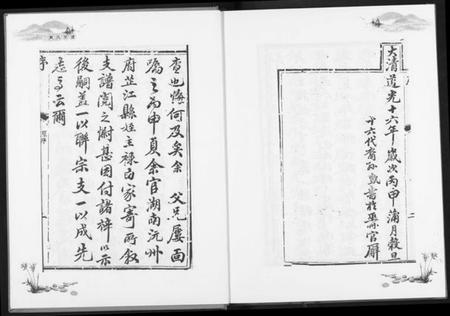 查也悔何及矣余 父兄屢面
囑之丙申夏余官湖南沅州
府芷江縣姪主祿由家寄所叙
支譜閱之慚甚因付諸梓以示
後嗣蓋一以聯宗支一以成先
志了云爾
序
大清道光十六年歲次丙申蒲月穀旦
十六代裔孫 書於 官廨